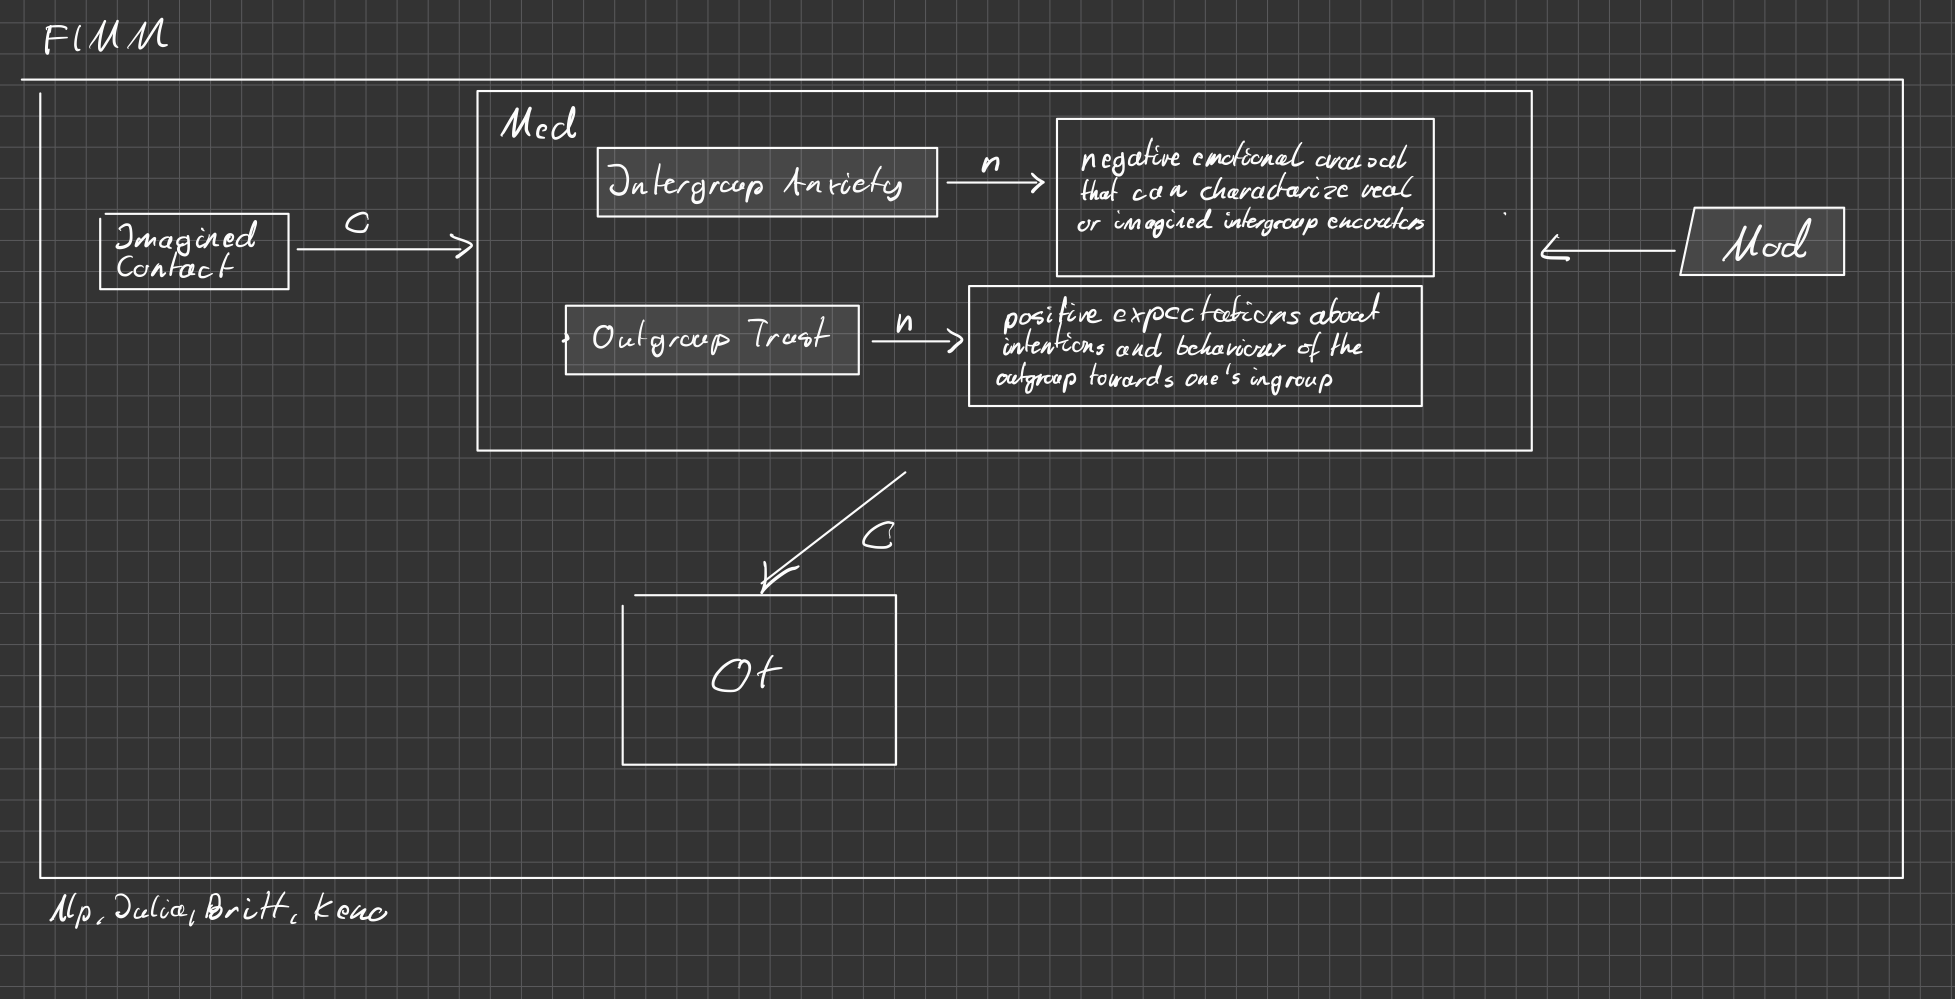 FIMM
Med
Intergroup Anxiety
n
negative emotional arousal
that can charactarize real
or imagined intergroup encounters
Imagined
Contact
C
Mod
Outgroup Trust
n
positive expectations about
intentions and behaviour of the
outgroup towards one's ingroup
C
Ot
Alp, Julia, Britt, Keno